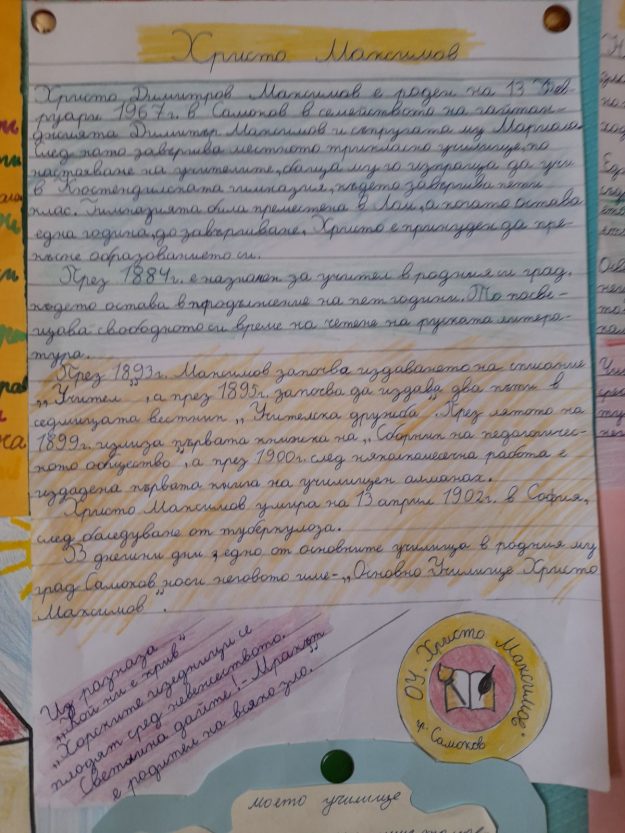 Христо Максимов
Христо Димитров Максимов е роден на 13 Фев-
руари 1967г. в Самоков в семейството на гайтан-
джията Димитър Максимов и съпругата му Мариола.
След като завършва местното трикласно училище, по
настояване на учителите, баща му го изпраща да учи
в Кюстендилската гимназия, където завършва пети
клас. Гимназията била преместена в Лом, а когато остава
една година, до завършване, Христо е принуден да пре-
късне образованието си.
През 1884г. е назначен за учител в родния си град,
където остава в продължение на пет години. То посве-
щава свободното си време на четене на руската литера-
тура.
През 1893г. Максимов започва издаването на списание
„Учител", а през 1895г. започва да издава два пъти в
седмицата вестник „Учителска дружба". През лятото на
1899г. излиза първата книжка на „Сборник на педагогичес-
кото общество", а през 1900г. след няколкомесечна работа е
издадена първата книга на училищен алманах.
Христо Максимов умира на 13 април 1902г. в София,
след боледуване от туберкулоза.
В днешни дни, едно от основните училища в родния му
град Самоков носи неговото име - „Основно Училище Христо
Максимов".
Из разказа
„Кой ни е крив"
„Хорските изедници се
плодят сред невежеството.
Светлина дайте! - Мракът
е родител на всяко зло."
ОУ. Христо Максимов.
гр. Самоков
моето училище